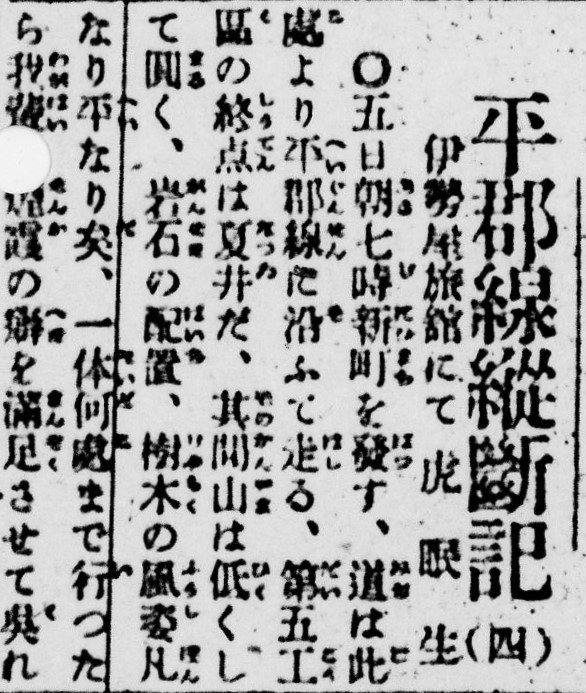 平郡線縱斷記(四)
伊勢屋旅館にて 虎眠生
〇五日朝七時新町を發す、道は此
處より平郡線に沿ふて走る、第五工
區の終点は夏井だ、其間山は低くし
て圓く、岩石の配置、樹木の風姿凡
なり平なり矣、一体何處まで行つた
ら我輩煙霞の癖を滿足させて呉れ